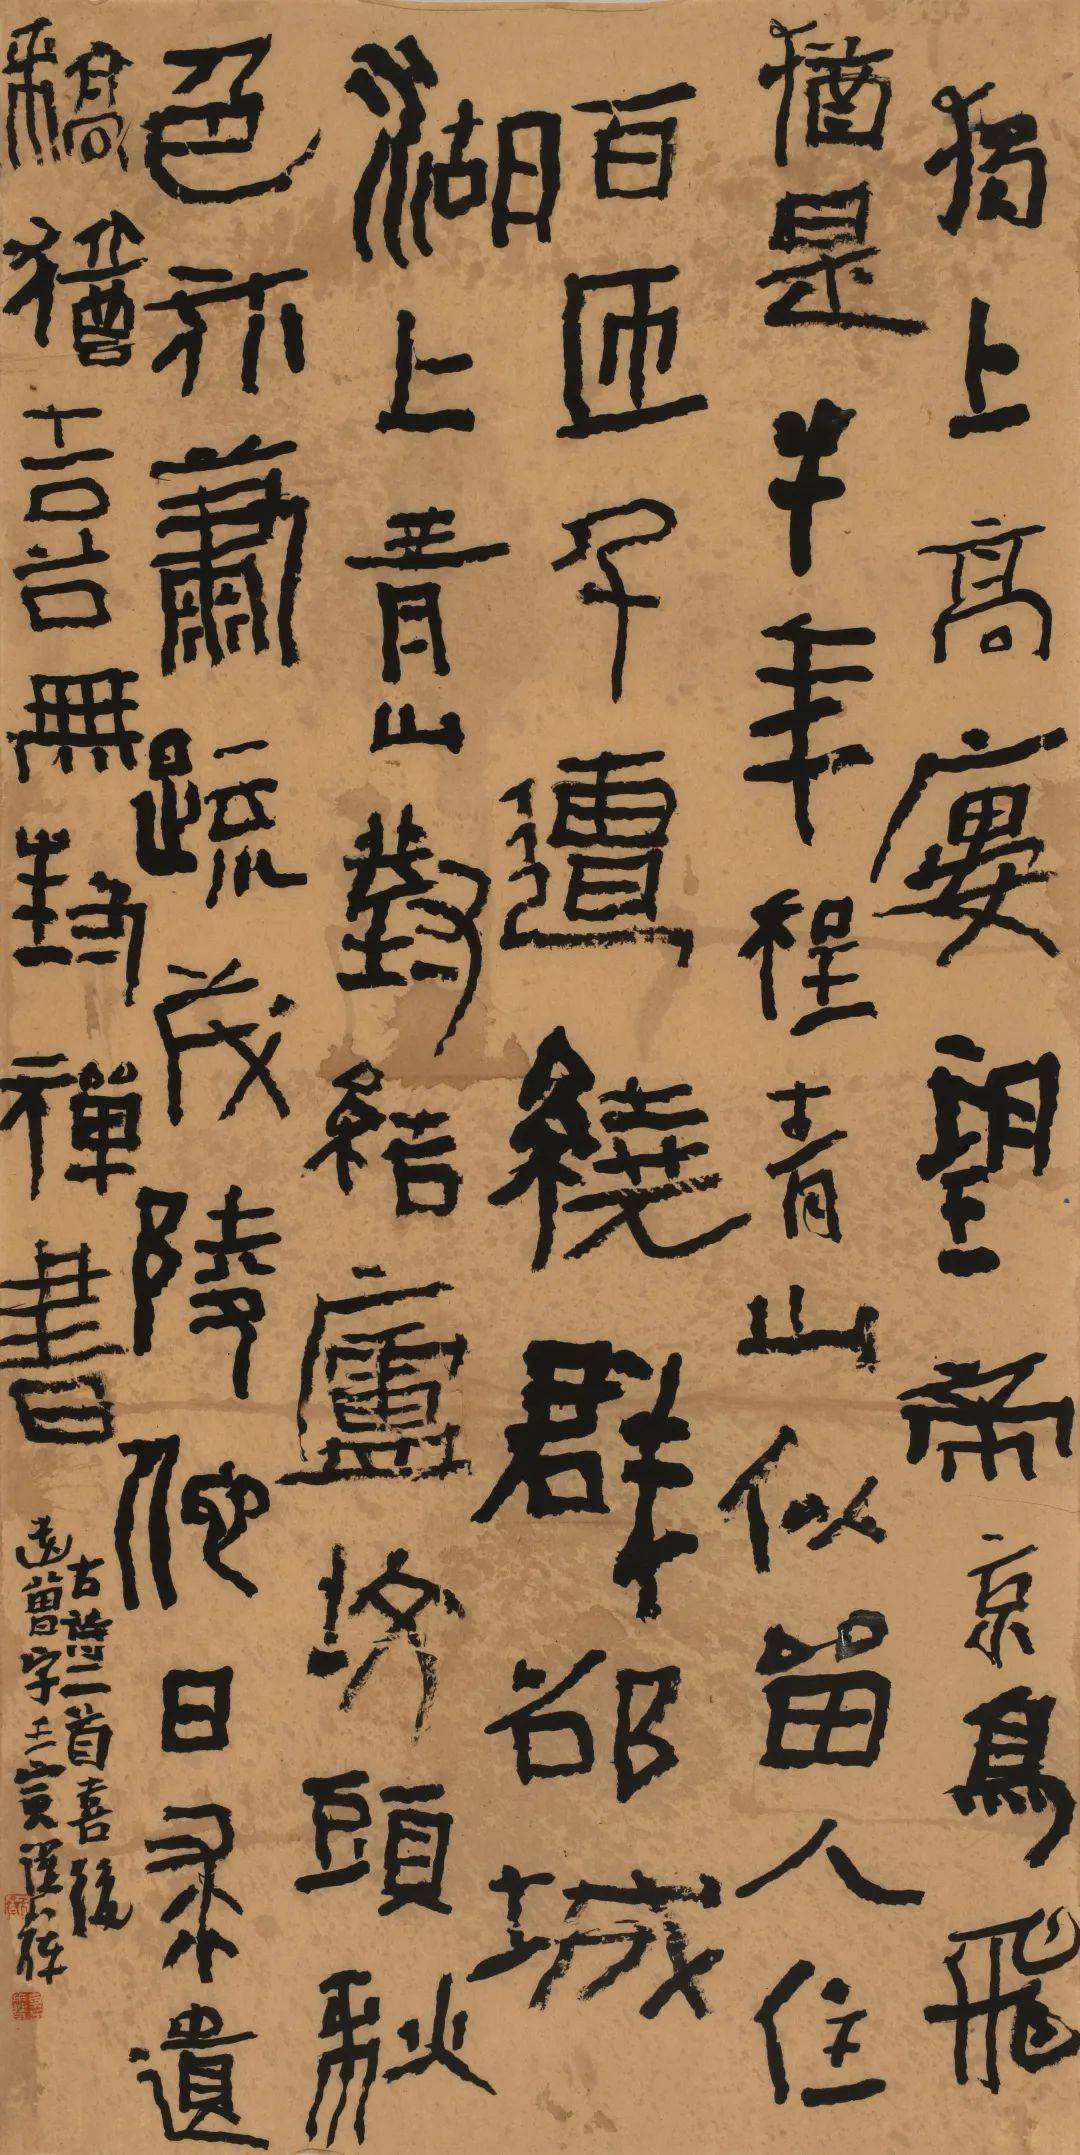 獨上高樓望帝京鳥飛
猶是半年程青山似留人住
百匝千遭繞群城
湖上青山對結廬墳頭秋
色亦蕭疏茂陵他日求遺
稿猶喜無封禪書
古詩二首喜後
遺曾字壬寅